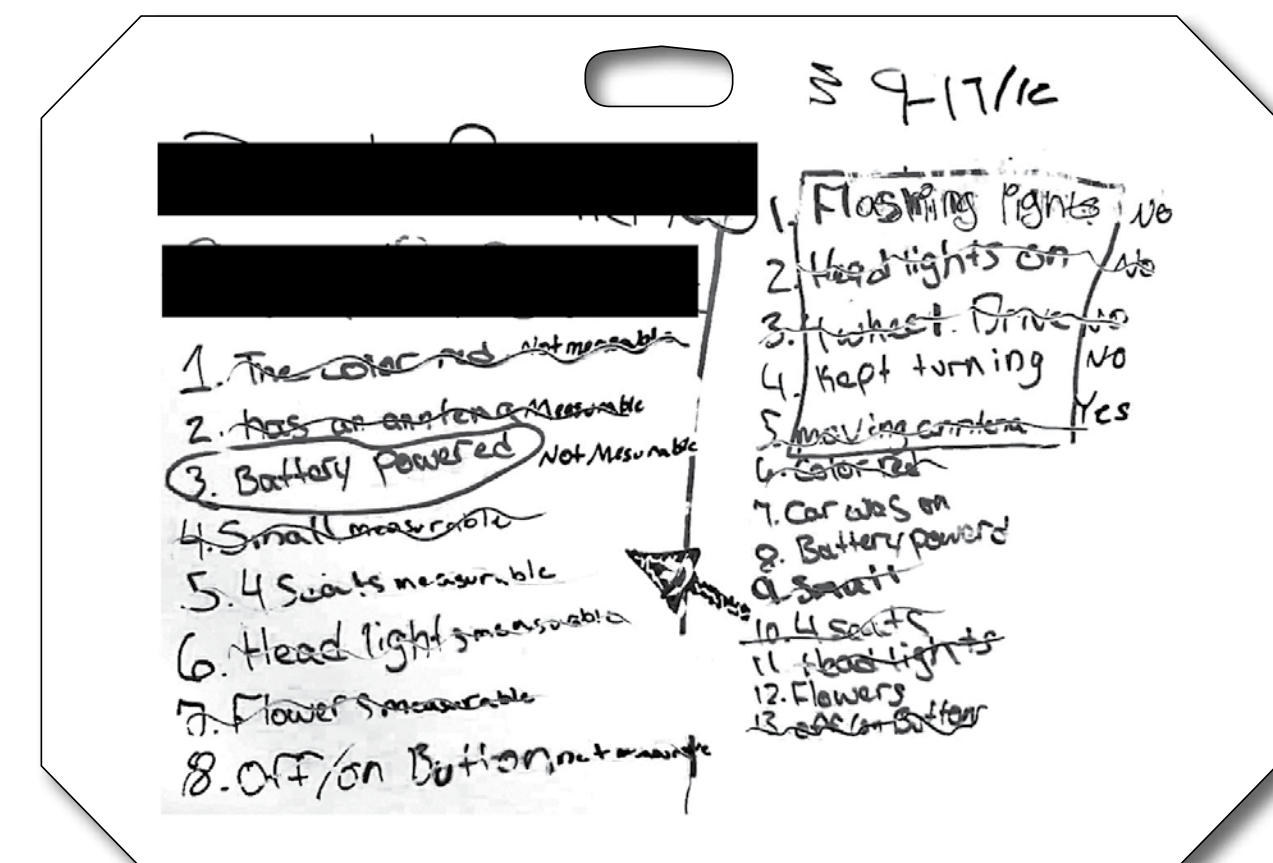 9-17/12
1. The color red Not measurable
2. has an anntena Measurable
3. Battery Powered Not Mesurable
4. Small measurable
5. 4 Seats measurable
6. Head lights measurable
7. Flowers measurable
8. Off/on Button, not
1. Flashing lights No
2. Head lights on No
3. 4 wheel Drive NO
4. Kept turning NO
5. moving anntena Yes
6. Color red
7. Car was on
8. Battery powerd
9. Small
10. 4 seats
11 Head lights
12. Flowers
13. off/on Button